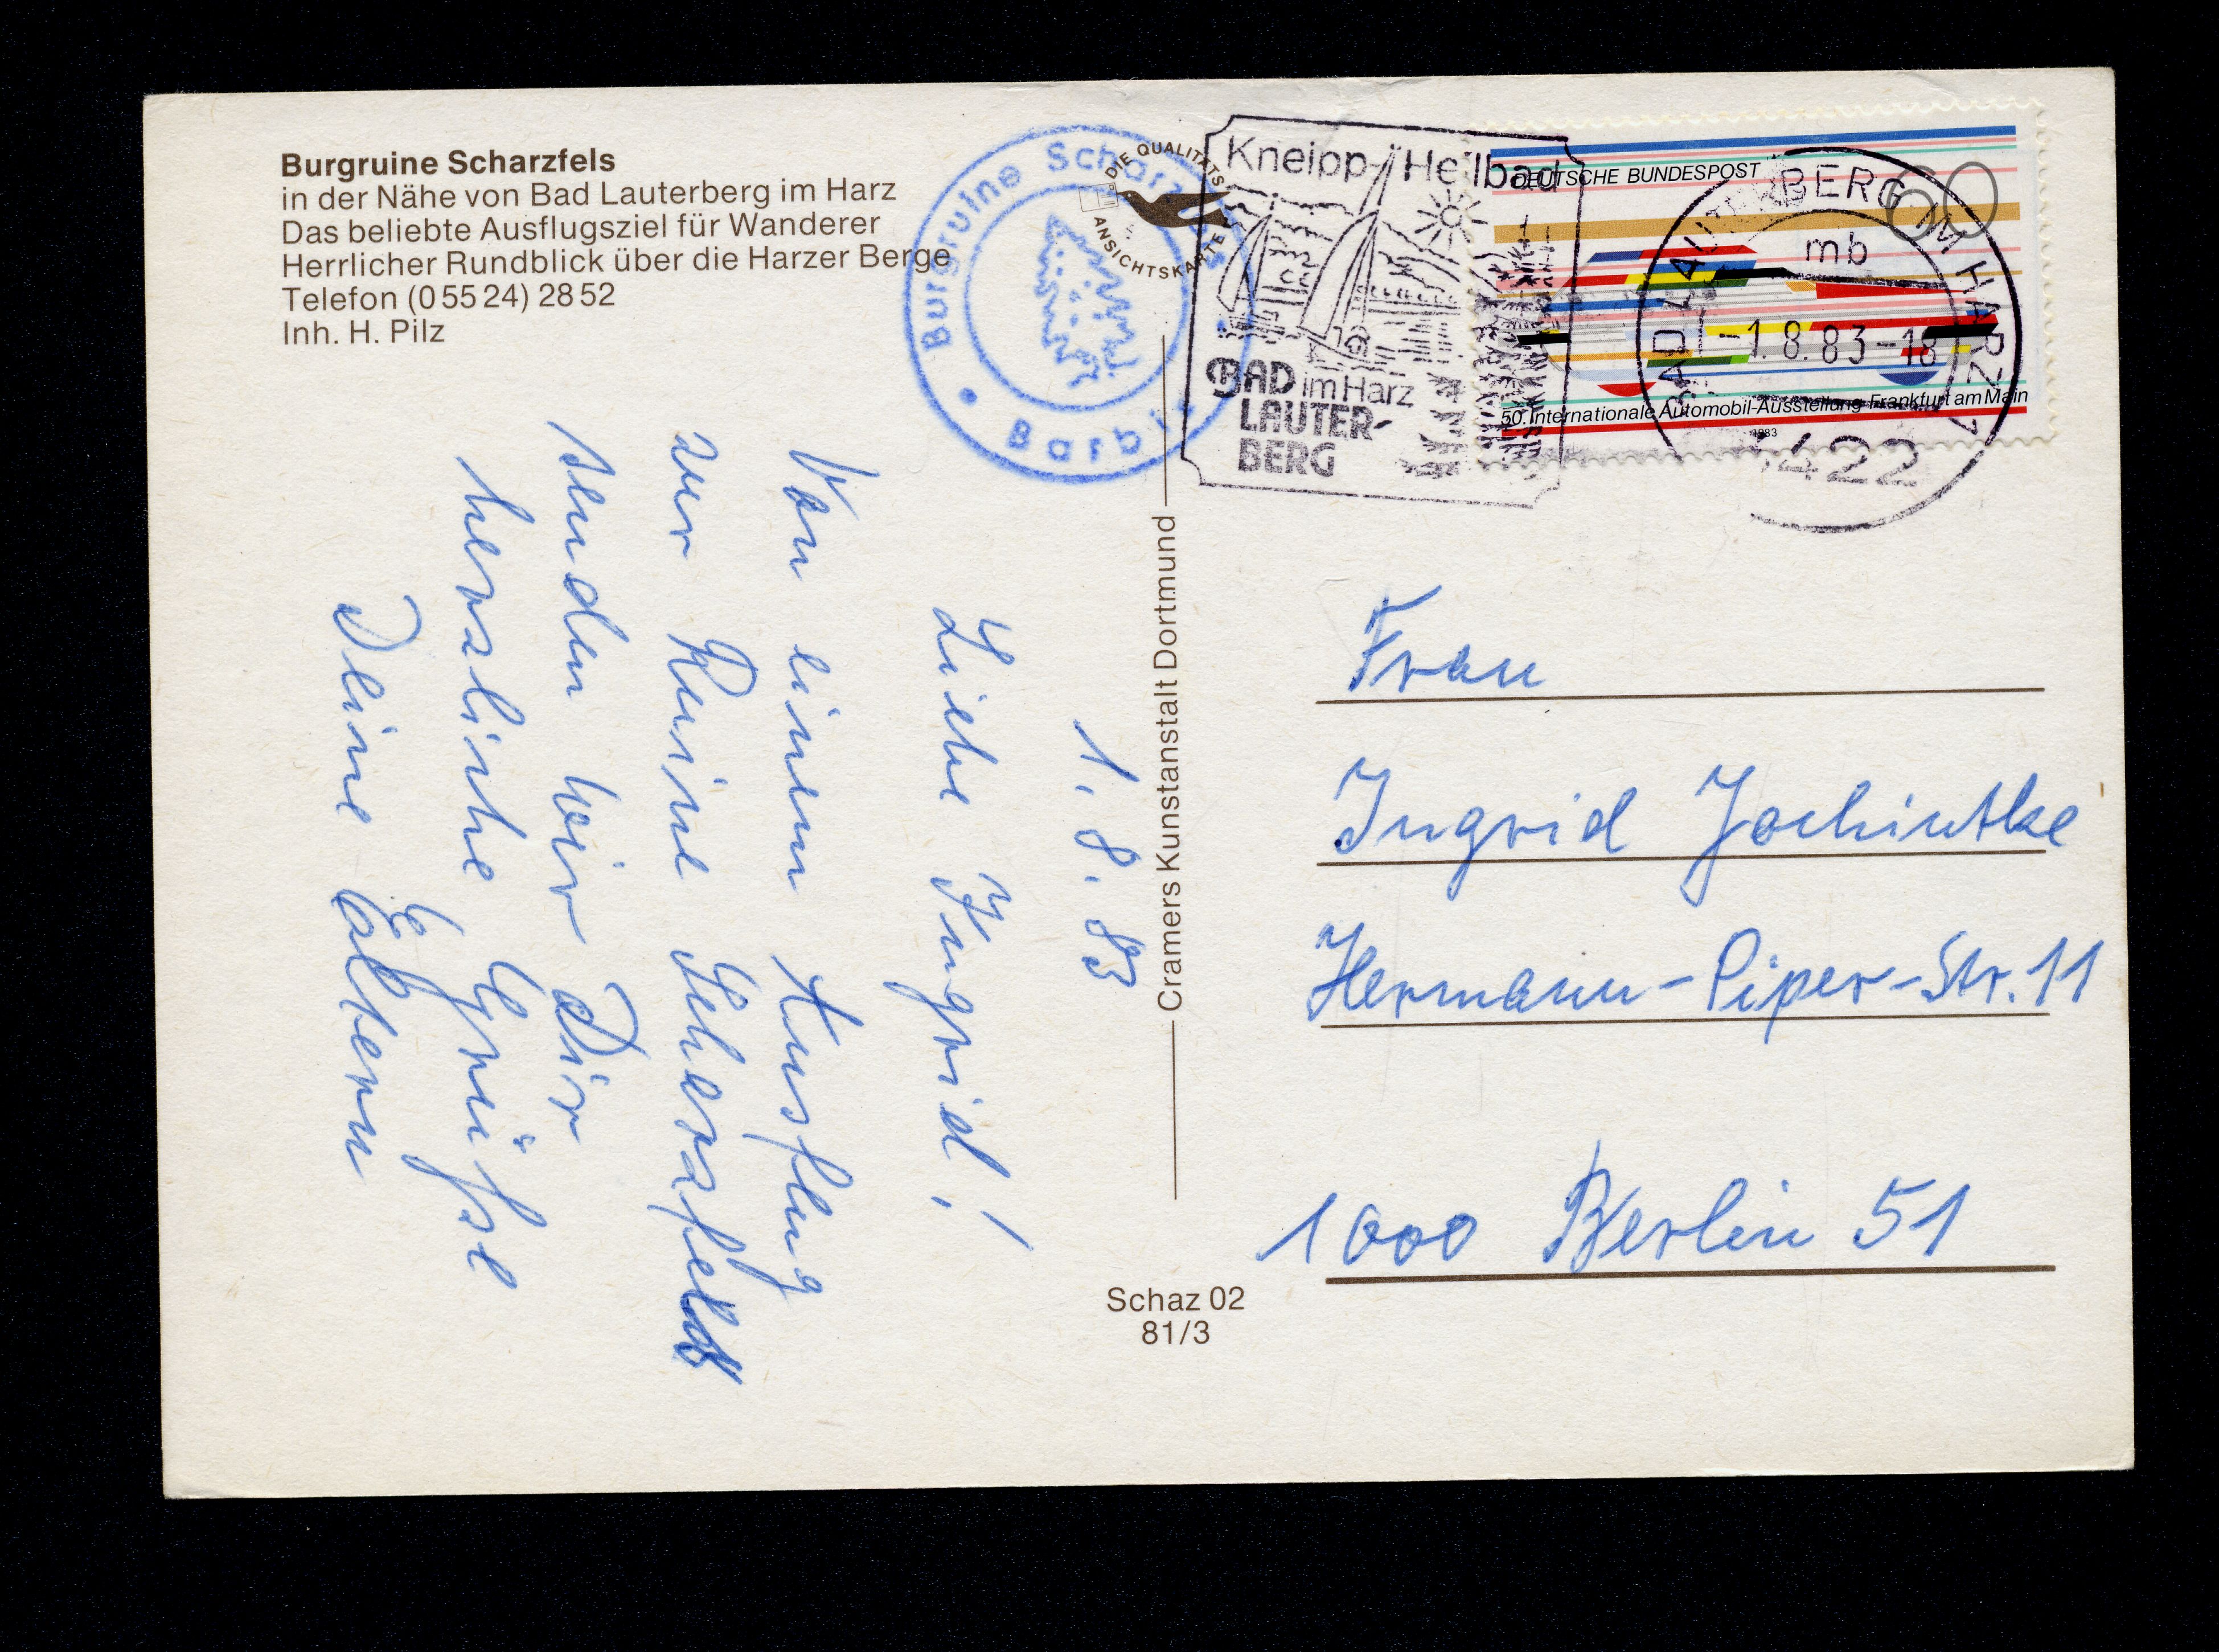 Burgruine Scharzfels
in der Nähe von Bad Lauterberg im Harz
Das beliebte Ausflugsziel für Wanderer
Herrlicher Rundblick über die Harzer Berge
Telefon (0 55 24) 28 52
Inh. H. Pilz
Burgruine Scharzfels
DIE QUALITÄTS
ANSICHTSKARTE
Kneipp-Heilbad
BAD im Harz
LAUTER-
BERG
DEUTSCHE BUNDESPOST
60
50. Internationale Automobil-Ausstellung Frankfurt am Main
1983
BAD LAUTERBERG IM HARZ 1
mb
-1.8.83-18
3422
1.8.83
Liebe Ingrid!
Von einem Ausflug
zur Ruine Scharzfels
senden wir Dir
herzliche Grüße
Deine Eltern
Cramers Kunstanstalt Dortmund
Frau
Ingrid Jochintke
Hermann-Piper-Str. 11
1000 Berlin 51
Schaz 02
81/3